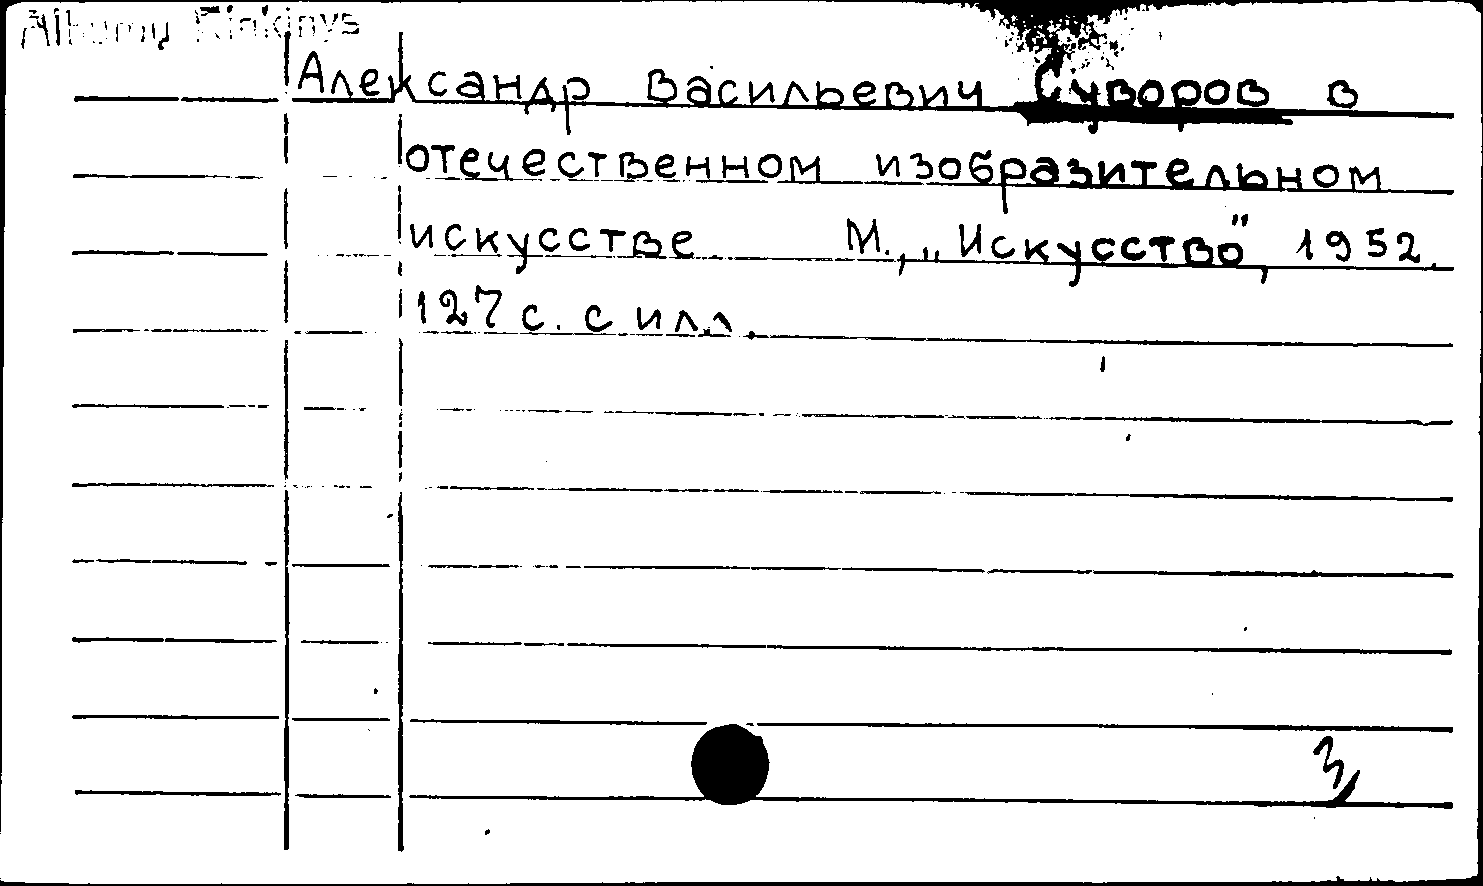 Albumų Rinkinys
Александр Васильевич Суворов в
отечественном изобразительном
искусстве М., „Искусство", 1952.
127 с. с илл.